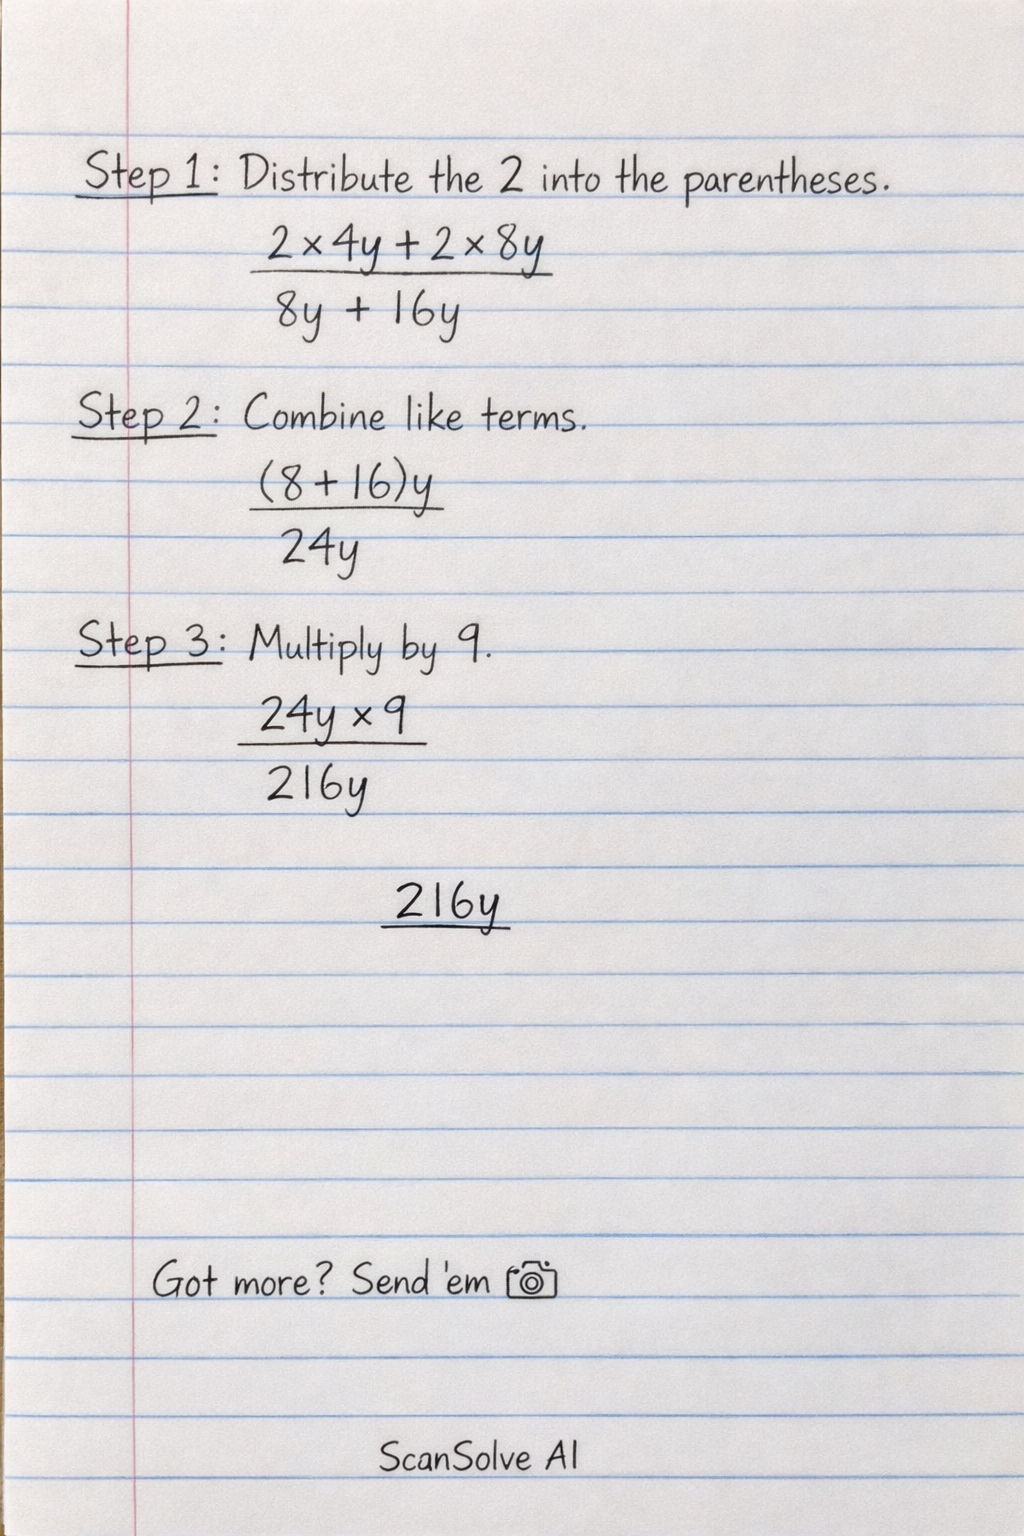 Step 1: Distribute the 2 into the parentheses.
2 × 4y + 2 × 8y
8y + 16y
Step 2: Combine like terms.
(8 + 16)y
24y
Step 3: Multiply by 9.
24y × 9
216y
216y
Got more? Send 'em
ScanSolve AI